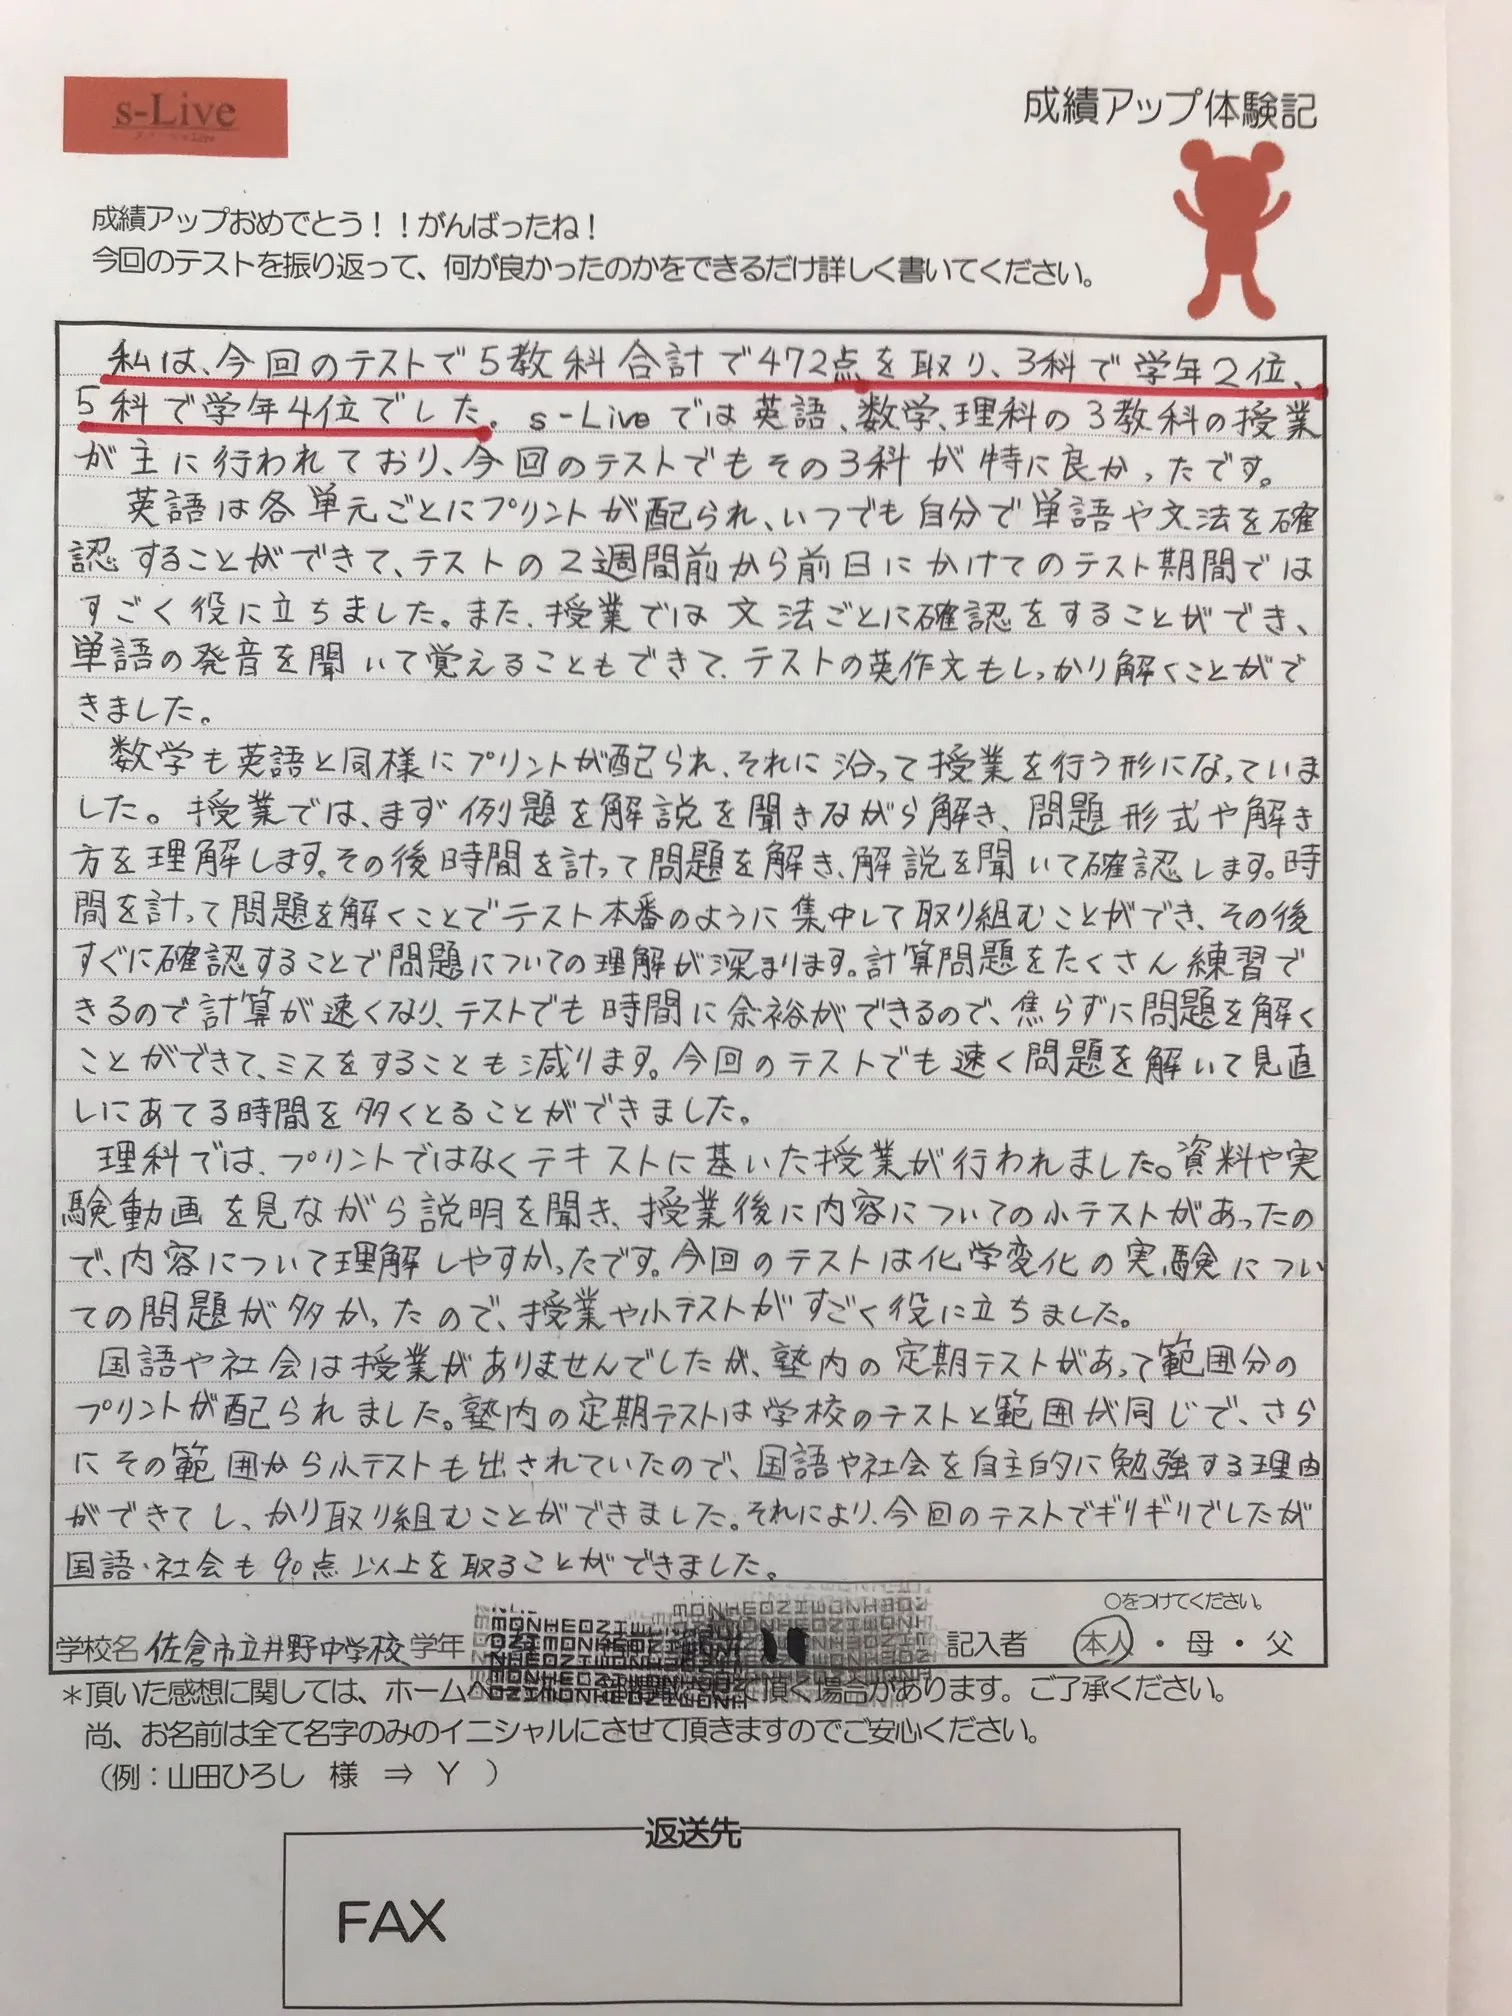 s-Live
成績アップ体験記
成績アップおめでとう！！がんばったね！
今回のテストを振り返って、何が良かったのかをできるだけ詳しく書いてください。
私は、今回のテストで5教科合計で472点を取り、3科で学年2位、
5科で学年4位でした。s-Liveでは英語、数学、理科の3教科の授業
が主に行われており、今回のテストでもその3科が特に良かったです。
英語は各単元ごとにプリントが配られ、いつでも自分で単語や文法を確
認することができて、テストの2週間前から前日にかけてのテスト期間では
すごく役に立ちました。また、授業では文法ごとに確認をすることができ、
単語の発音を聞いて覚えることもできて、テストの英作文もしっかり解くことがで
きました。
数学も英語と同様にプリントが配られ、それに沿って授業を行う形になっていま
した。授業では、まず例題を解説を聞きながら解き、問題形式や解き
方を理解します。その後時間を計って問題を解き、解説を聞いて確認します。時
間を計って問題を解くことでテスト本番のように集中して取り組むことができ、その後
すぐに確認することで問題についての理解が深まります。計算問題をたくさん練習で
きるので計算が速くなり、テストでも時間に余裕ができるので、焦らずに問題を解く
ことができて、ミスをすることも減ります。今回のテストでも速く問題を解いて見直
しにあてる時間を多くとることができました。
理科では、プリントではなくテキストに基いた授業が行われました。資料や実
験動画を見ながら説明を聞き、授業後に内容についての小テストがあったの
で、内容について理解しやすかったです。今回のテストは化学変化の実験につい
ての問題が多かったので、授業や小テストがすごく役に立ちました。
国語や社会は授業がありませんでしたが、塾内の定期テストがあって範囲分の
プリントが配られました。塾内の定期テストは学校のテストと範囲が同じで、さら
にその範囲から小テストも出されていたので、国語や社会を自主的に勉強する理由
ができてしっかり取り組むことができました。それにより、今回のテストでギリギリでしたが
国語・社会も90点以上を取ることができました。
○をつけてください。
学校名 佐倉市立井野中学校 学年 記入者 本人・母・父
＊頂いた感想に関しては、ホームペ て頂く場合があります。ご了承ください。
尚、お名前は全て名字のみのイニシャルにさせて頂きますのでご安心ください。
（例：山田ひろし 様 ⇒ Y ）
返送先
FAX